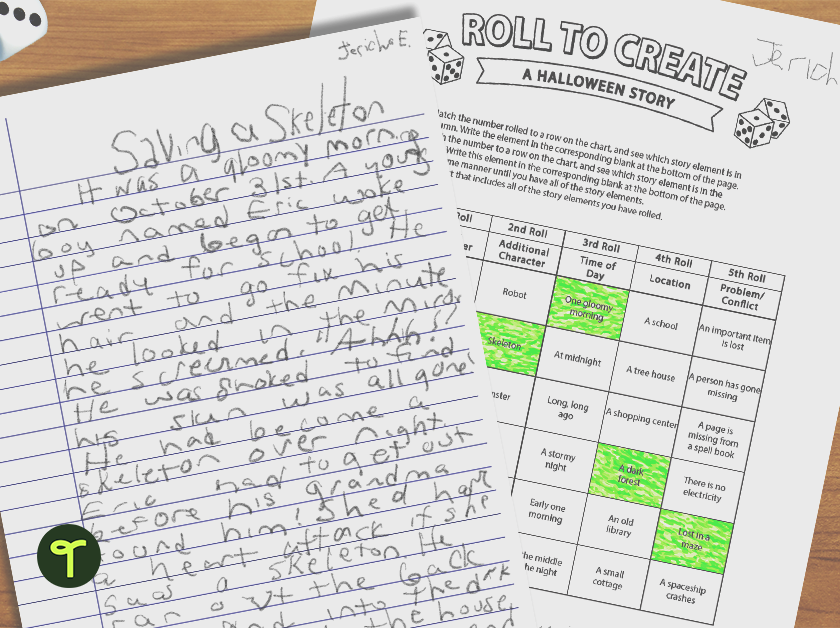 Jericho E.
Saving a Skeleton
It was a gloomy morning
on October 31st A young
boy named Eric woke
up and began to get
ready for school. He
went to go fix his
hair and the minute
he looked in the mirror
he screamed. "Ahhh!"
He was shoked to find
his skin was all gone!
He had become a
skeleton over night.
Eric had to get out
before his grandma
found him! She'd have
a heart attack if she
saw a skeleton. He
ran out the back
and into the dark
the house
ROLL TO CREATE
A HALLOWEEN STORY
Jerich
atch the number rolled to a row on the chart, and see which story element is in
umn. Write the element in the corresponding blank at the bottom of the page.
the number to a row on the chart, and see which story element is in the
Write this element in the corresponding blank at the bottom of the page.
me manner until you have all of the story elements.
t that includes all of the story elements you have rolled.
Roll
2nd Roll
3rd Roll
4th Roll
5th Roll
er
Additional Character
Time of Day
Location
Problem/ Conflict
Robot
One gloomy morning
A school
An important item is lost
Skeleton
At midnight
A tree house
A person has gone missing
nster
Long, long ago
A shopping center
A page is missing from a spell book
A stormy night
A dark forest
There is no electricity
Early one morning
An old library
Lost in a maze
he middle the night
A small cottage
A spaceship crashes